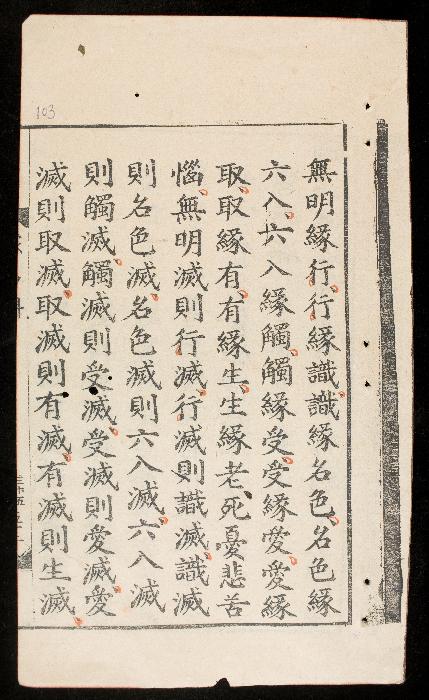 無明緣行行緣識識緣名色名色緣
六入六入緣觸觸緣受受緣愛愛緣
取取緣有有緣生生緣老死憂悲苦
惱無明滅則行滅行滅則識滅識滅
則名色滅名色滅則六入滅六入滅
則觸滅觸滅則受滅受滅則愛滅愛
滅則取滅取滅則有滅有滅則生滅
103